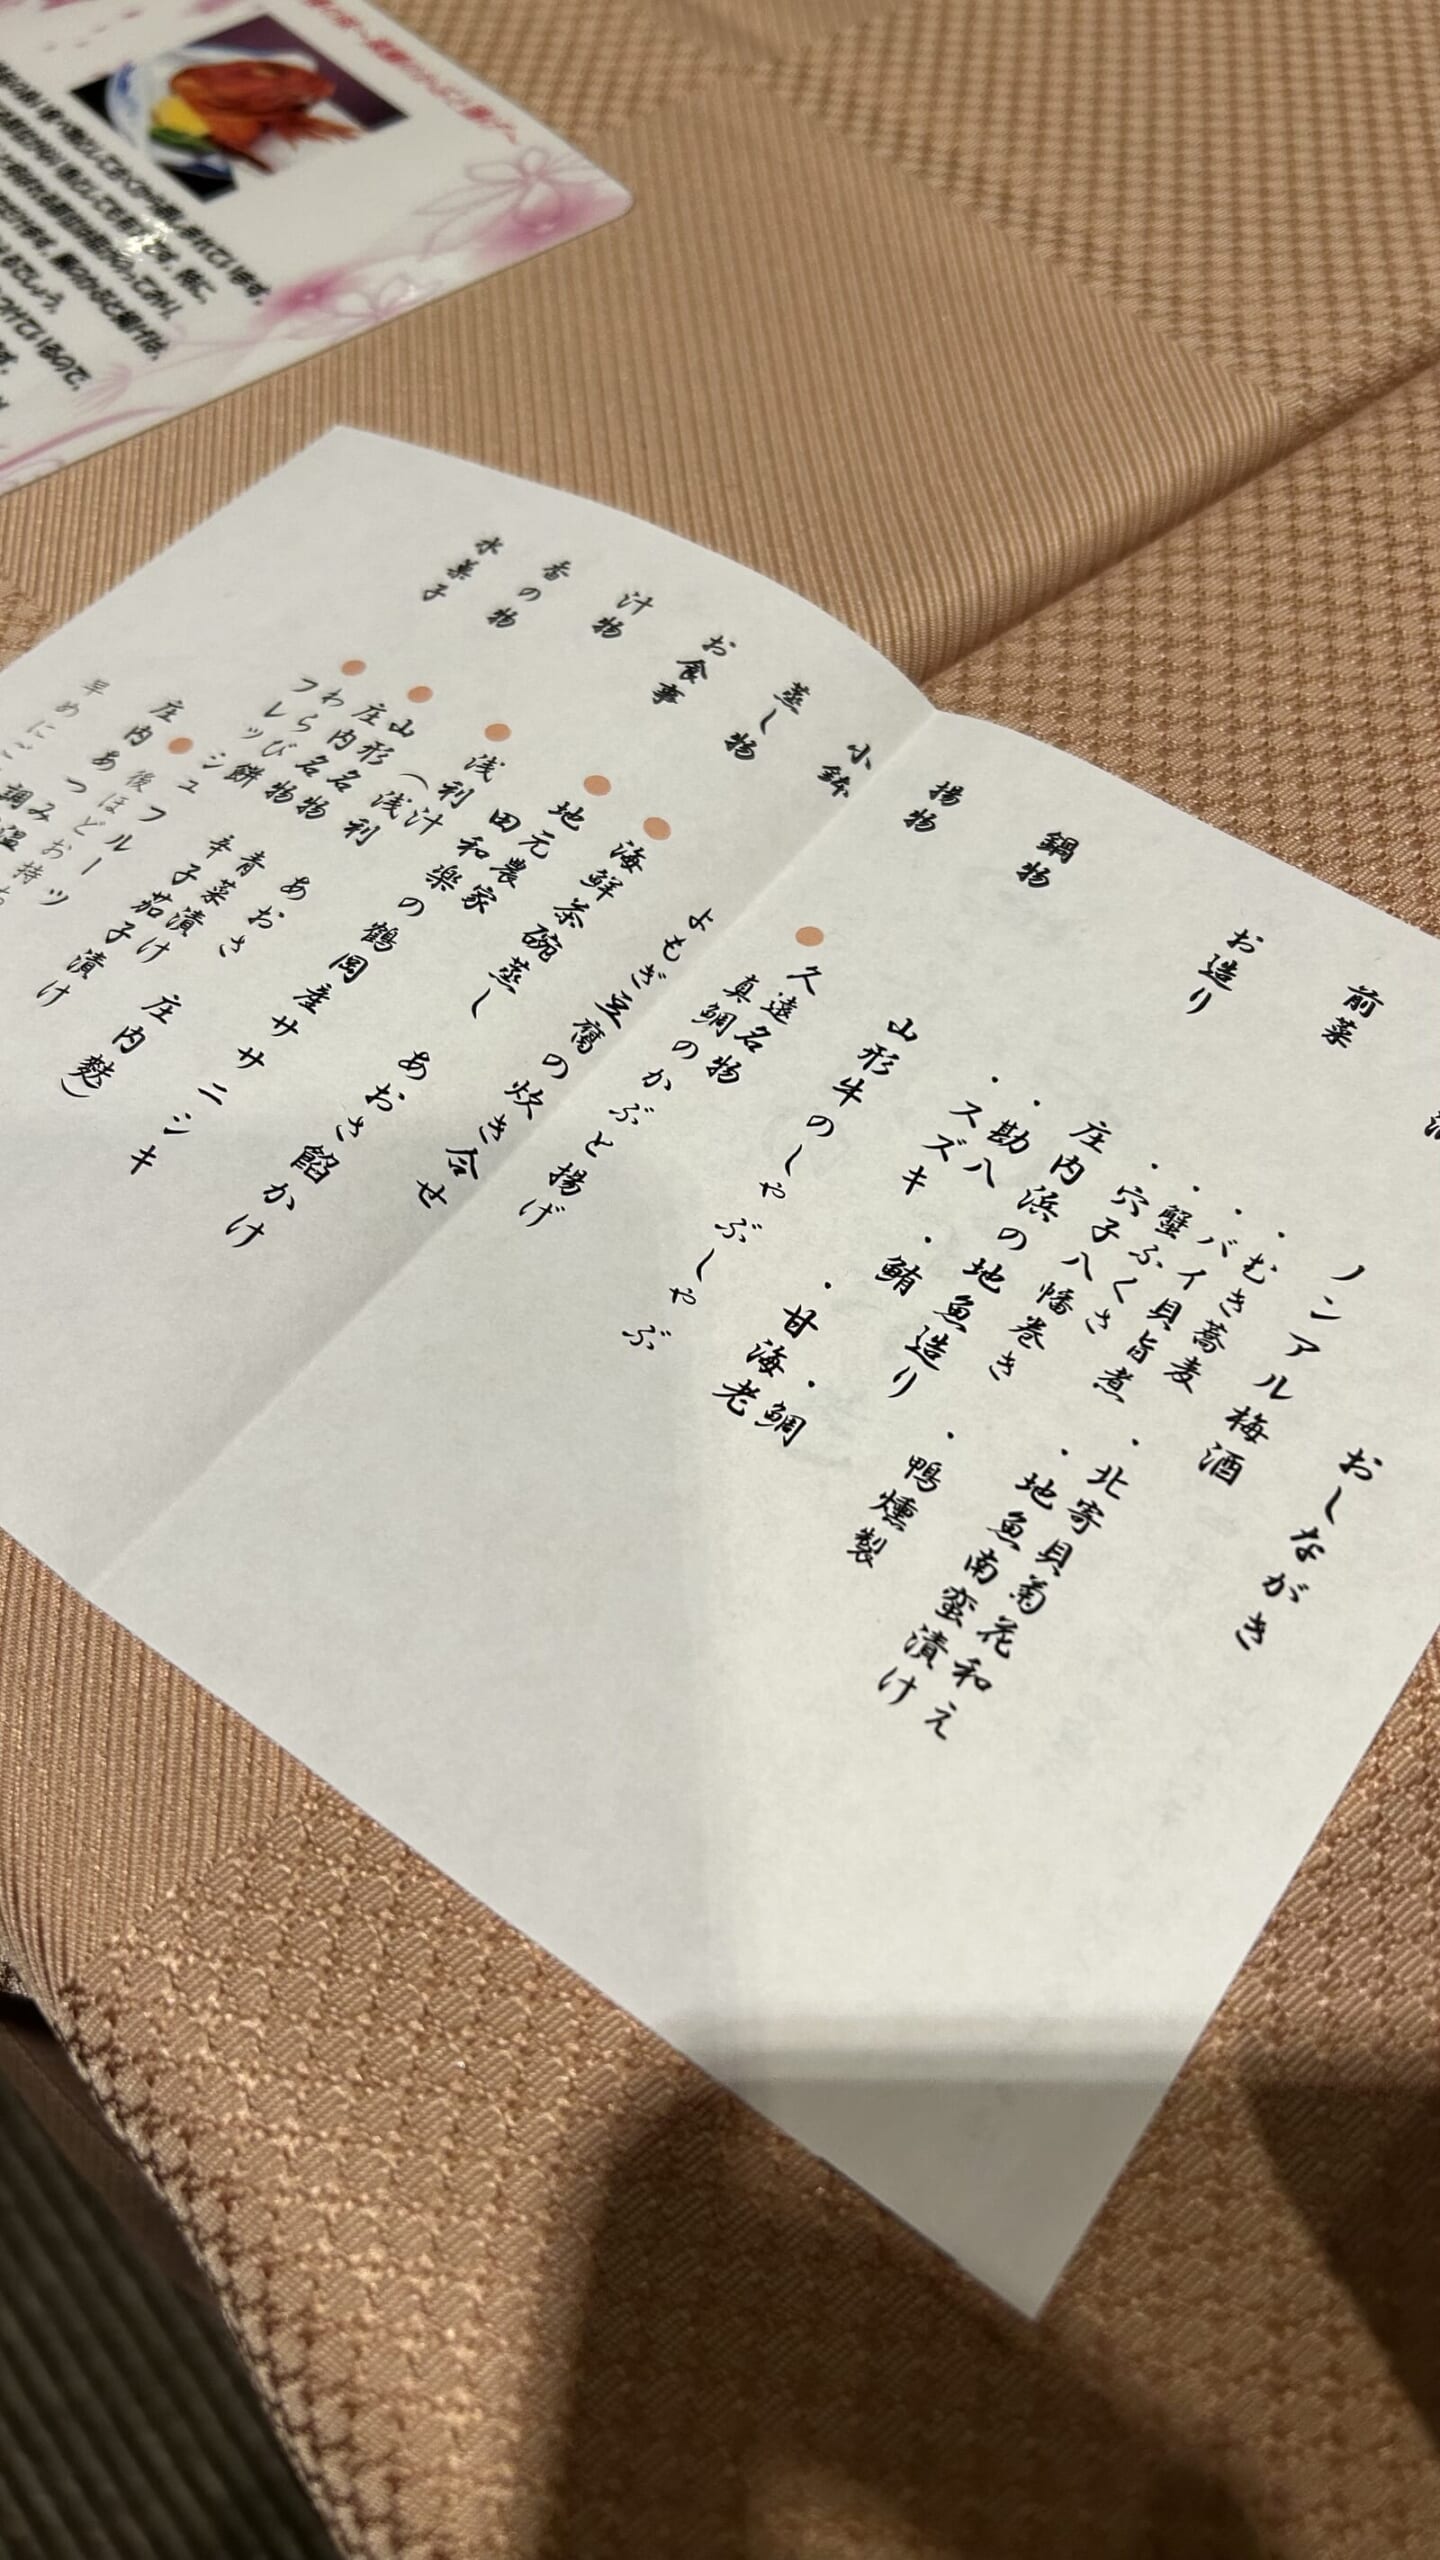 おしながき
ノンアル梅酒
前菜
・むき蕎麦
・バイ貝旨煮
・北寄貝菊花和え
・蟹ふくさ
・地魚南蛮漬け
・穴子八幡巻き
・鴨燻製
お造り
庄内浜の地魚造り
・勘八
・鯛
・スズキ
・鮪
・甘海老
鍋物
山形牛のしゃぶしゃぶ
揚物
久遠名物
真鯛のかぶと揚げ
小鉢
よもぎ豆腐の炊き合せ
蒸し物
海鮮茶碗蒸し
あおさ餡かけ
お食事
地元農家
田和楽の鶴岡産ササニシキ
汁物
浅利汁
(浅利
あおさ
庄内麩)
香の物
山形名物
青菜漬け
庄内名物
辛子茄子漬け
水菓子
わらび餅
フルーツ
フレッシュ
後ほどお持ち
庄内あつみ温
早めにご